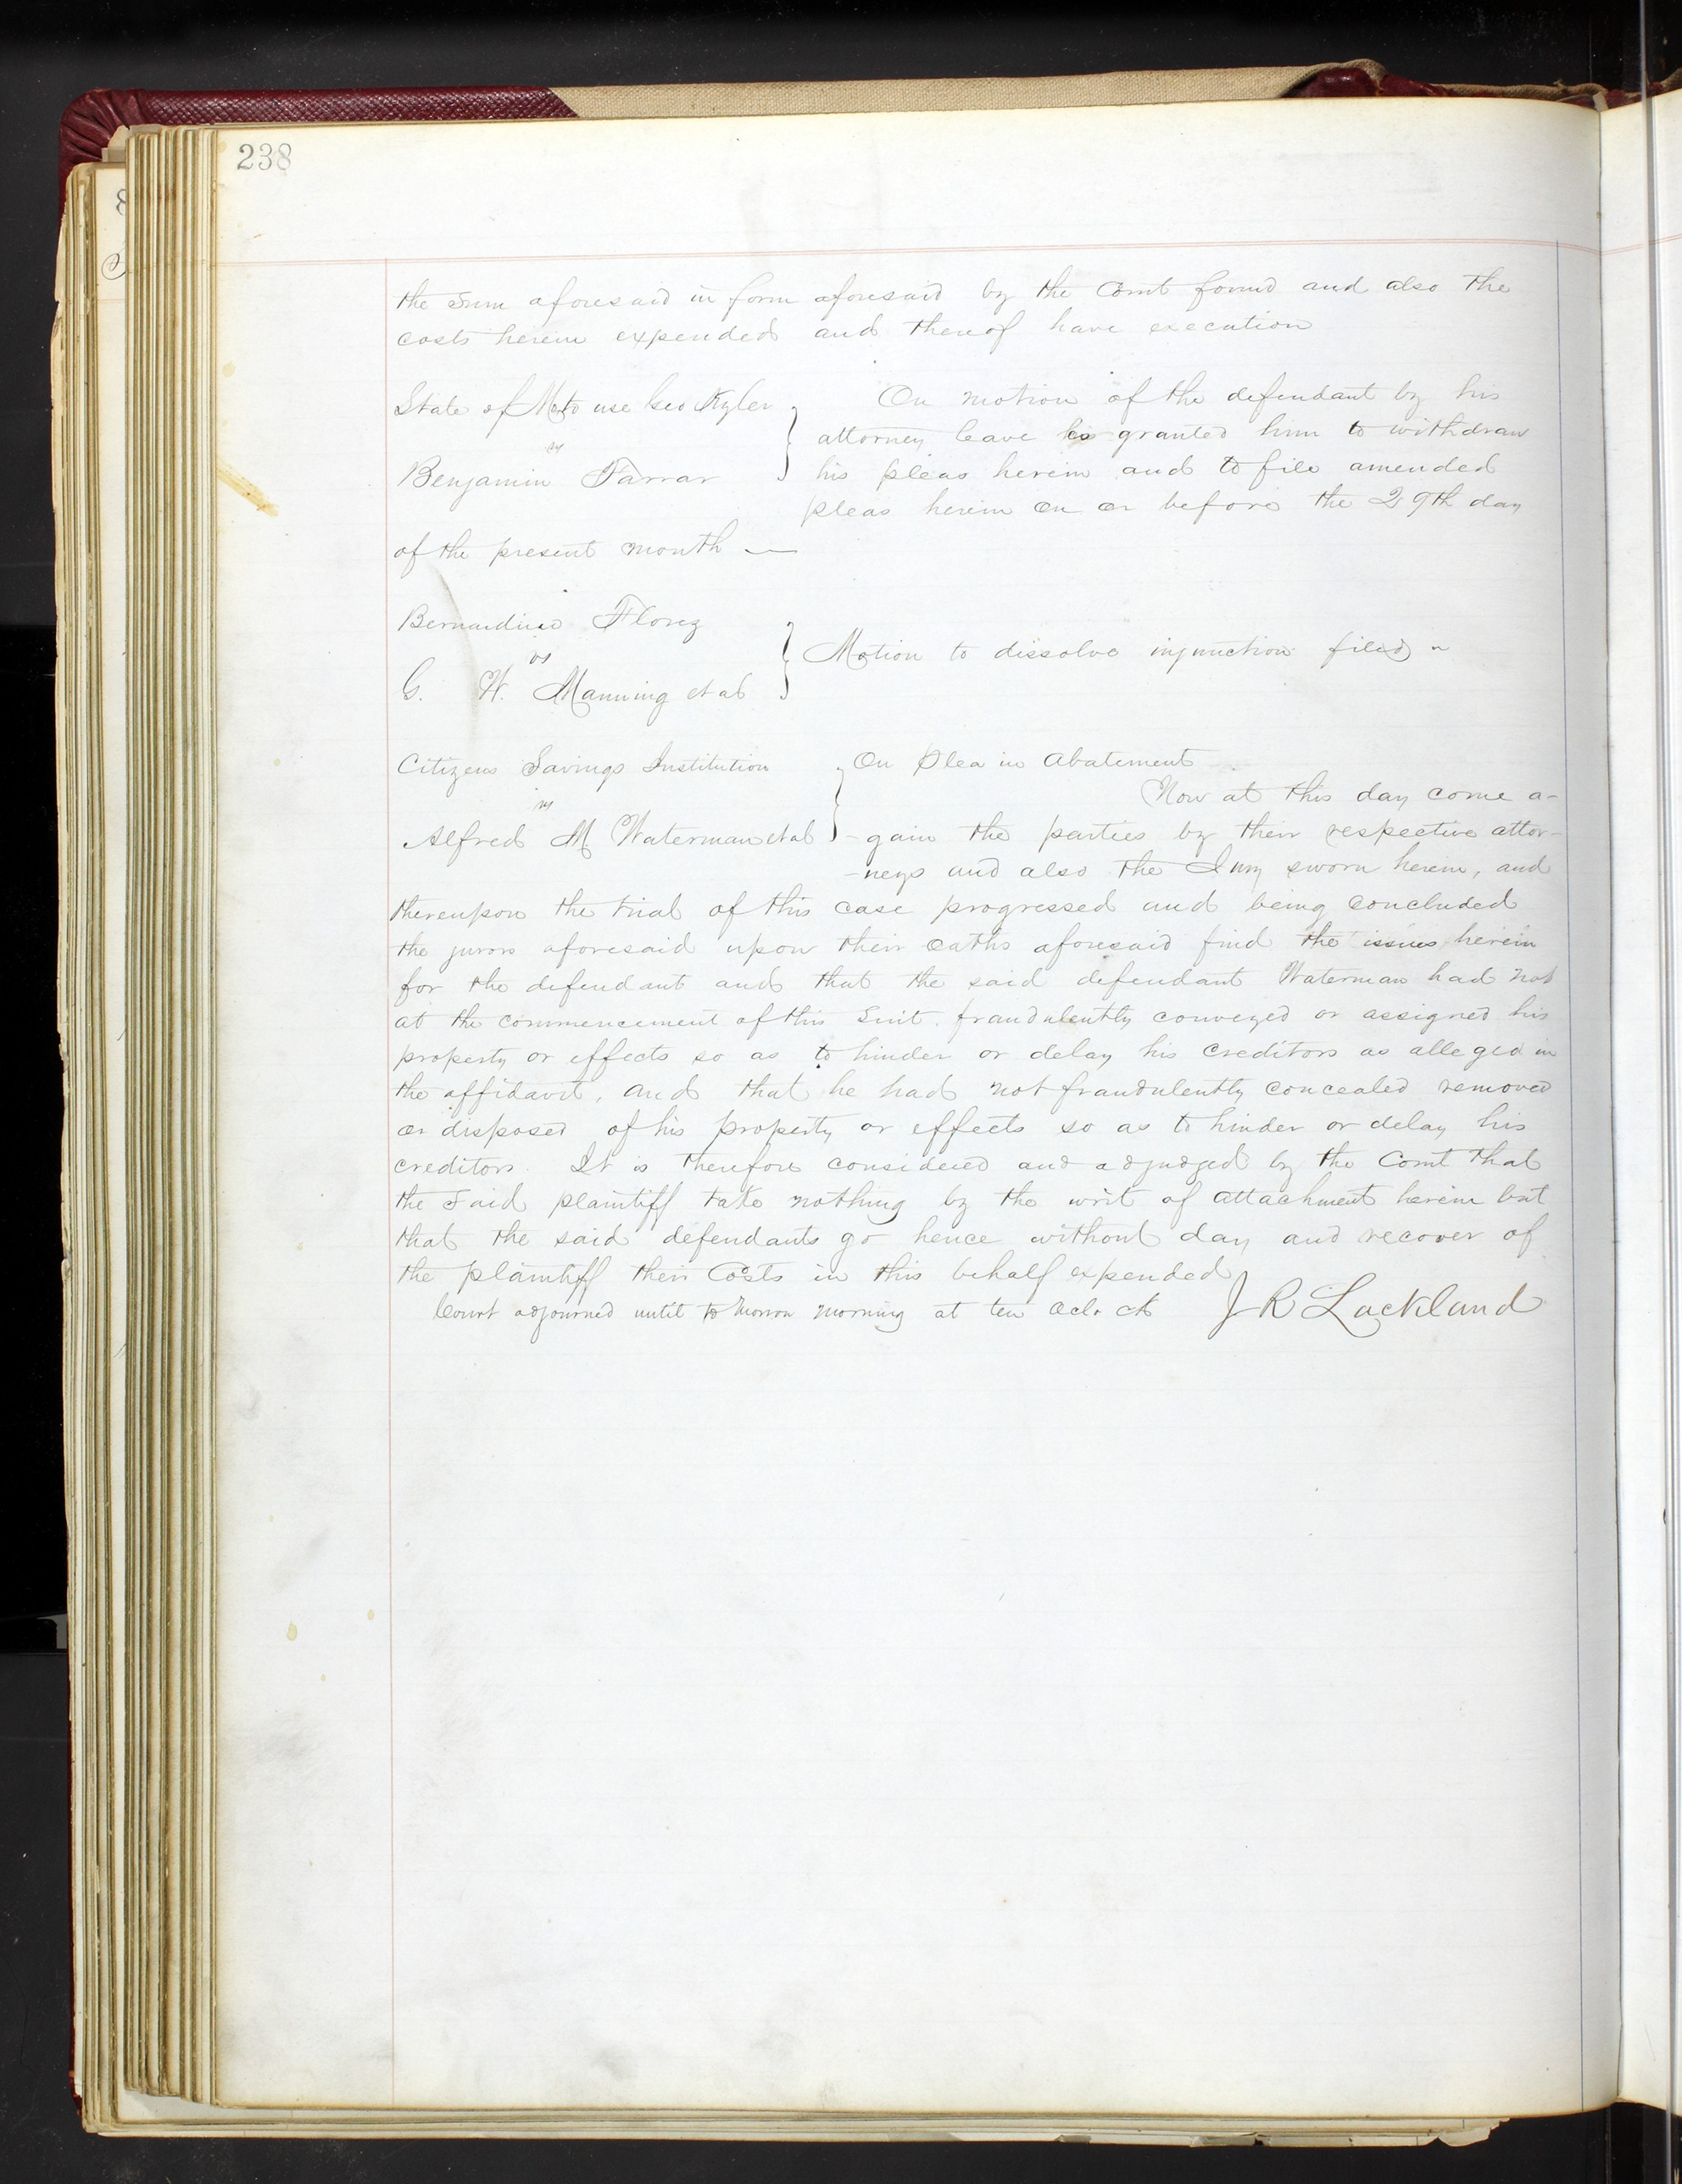 238
the Sum aforesaid in form aforesaid by the Court found and also the
costs herein expended and thereof have execution
State of Mo to use Geo Kyler
vs
Benjamin Farrar
On motion of the defendant by his
attorney leave is granted him to withdraw
his pleas herein and to file amended
pleas herein on or before the 29th day
of the present month —
Bernardino Florez
vs
G. W. Manning et al
Motion to dissolve injunction filed ~
Citizens Savings Institution
vs
Alfred M Waterman et al
On Plea in Abatement
Now at this day come a-
-gain the parties by their respective attor-
-neys and also the Jury sworn herein, and
thereupon the trial of this case progressed and being concluded
the jurors aforesaid upon their oaths aforesaid find the issues herein
for the defendant and that the said defendant Waterman had not
at the commencement of this Suit fraudulently conveyed or assigned his
property or effects so as to hinder or delay his creditors as alleged in
the affidavit, and that he had not fraudulently concealed removed
or disposed of his property or effects so as to hinder or delay his
creditors. It is therefore considered and adjudged by the Court that
the Said plaintiff take nothing by the writ of attachment herein but
that the said defendants go hence without day and recover of
the plaintiff their Costs in this behalf expended
Court adjourned until to morrow morning at ten oclock J R Lackland